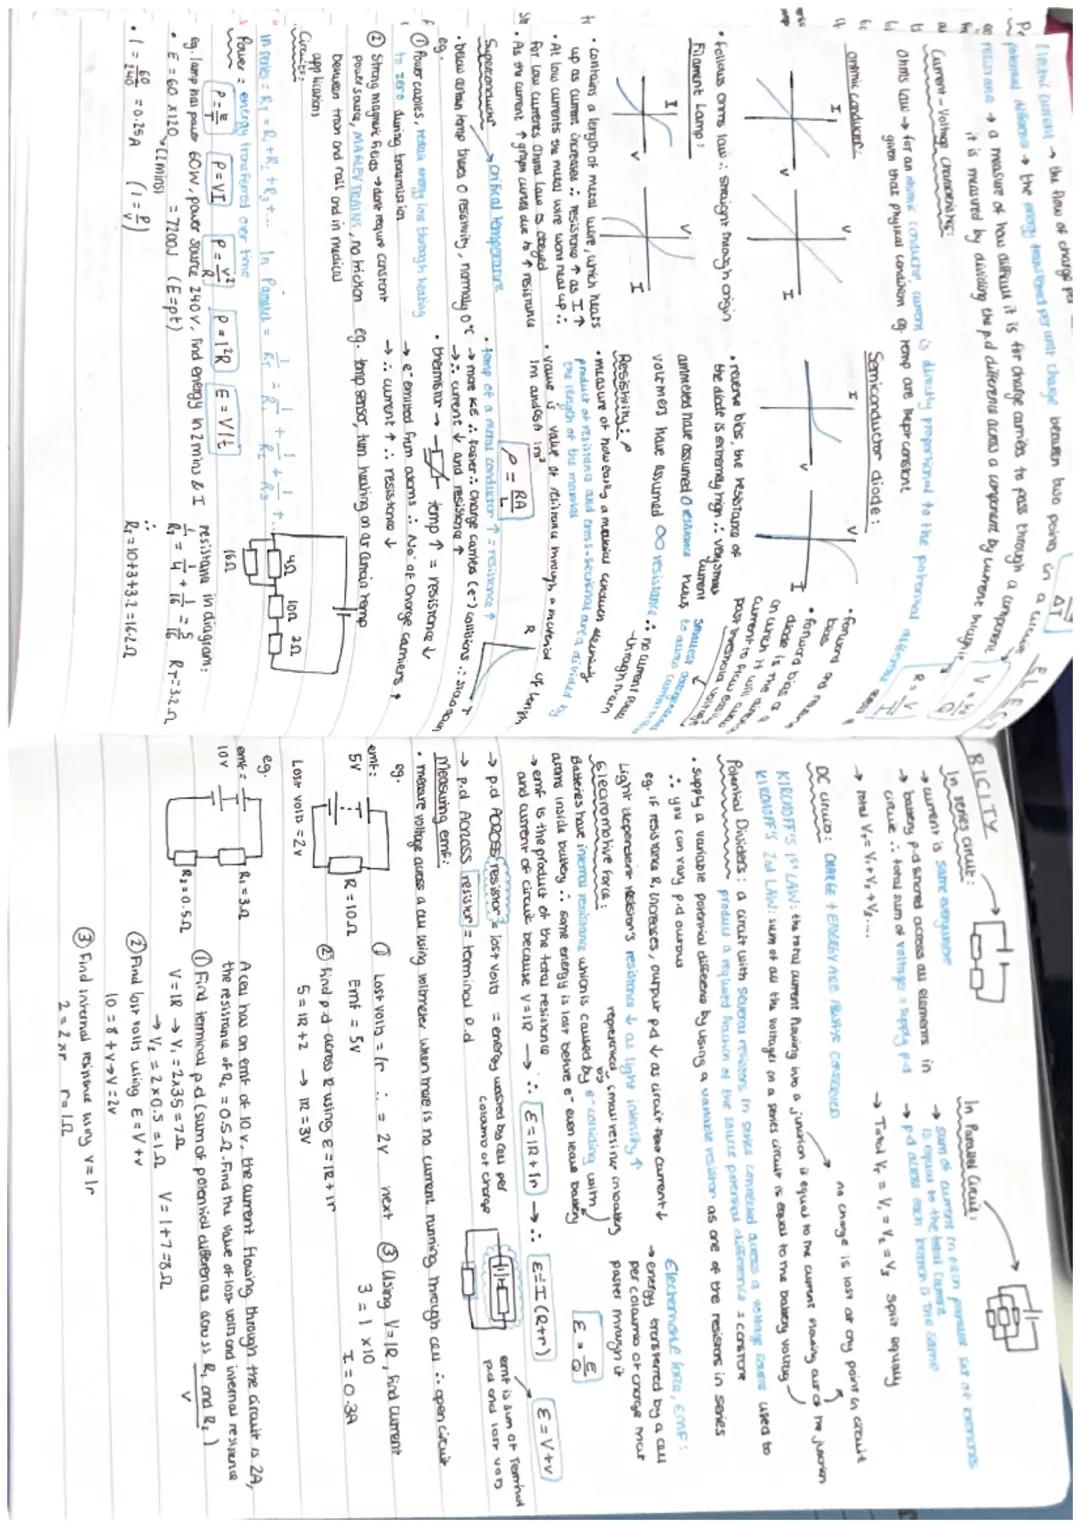 ELEC
Electric current → the flow of charge per
potential difference → the energy transferred per unit charge between two points in a circuit
V = W/Q
resistance → a measure of how difficult it is for charge carriers to pass through a component
it is measured by dividing the p.d difference across a component by current through
R = V/I
Current - Voltage characteristics:
Ohms law → for an ohmic conductor, current is directly proportional to the potential difference
given that physical condition eg. temp are kept constant
Ohmic conductor:
I
V
V
I
• follows ohms law ∴ straight through origin
Filament Lamp:
I
V
V
I
• contains a length of metal wire, which heats
up as current increases ∴ resistance ↑ as I ↑
• At low currents the metal wire wont heat up ∴
for low currents Ohms law is obeyed
• As the current ↑ graph curves due to ↑ resistance
Semiconductor diode:
I
V
V
I
• forward and reverse
bias
• forward bias of a
diode is the
in which it will allow
current to flow easily
past threshold voltage
smallest
needed to allow current
• reverse bias, the resistance of
the diode is extremely high ∴ very small
current
ammeters have assumed 0 resistance
voltmers have assumed ∞ resistance ∴ no current flow
through them
Resistivity: ρ
• measure of how easily a material conducts electricity
product of resistance and cross-sectional area divided by
the length of the material
• value is value of resistance through a material of length
1m and csa 1m²
ρ = RA/L
Superconductor → critical temperature
• below certain temp theres 0 resistivity, normally 0°C
eg.
① Power cables, reduce energy loss through heating
to zero during transmission
② strong magnetic fields → dont require constant
power source, MAGLEV TRAINS, no friction
between train and rail and in medical
applications
• temp of a metal conductor ↑ = resistance ↑
→ more KE ∴ faster ∴ charge carries (e⁻) collisions ∴ slow down
→ ∴ current ↓ and resistance ↑
R
T
• thermistor → temp ↑ = resistance ↓
→ e⁻ emitted from atoms ∴ No. of charge carriers ↑
→ ∴ current ↑ ∴ resistance ↓
eg. temp sensor, turn heating on at certain temp
Circuits:
In series = R₁ + R₂ + R₃ +... In Parallel = 1/RT = 1/R₁ + 1/R₂ + 1/R₃ +...
Power = energy transferred over time
P = E/t P = VI P = V²/R P = I²R E = VIt
eg. lamp has power 60W, power source 240V. find energy in 2mins & I
• E = 60 × 120 (2 mins) = 7200J (E=pt)
• I = 60/240 = 0.25A (I = P/V)
4Ω
10Ω
2Ω
16Ω
resistance in diagram:
1/RT = 1/4 + 1/16 = 5/16 RT = 3.2Ω
∴
RT = 10+3+3.2 = 16.2Ω
RICITY
In series circuit:
→ current is same everywhere
→ battery p.d shared across all elements in
circuit ∴ total sum of voltages = supply p.d
→ total VT = V₁ + V₂ + V₃....
In Parallel Circuit:
→ sum of current in each parallel set of branches
is equal to the total current
→ p.d across each branch is the same
→ Total VT = V₁ = V₂ = V₃ split equally
DC circuits: CHARGE + ENERGY ARE ALWAYS CONSERVED
no charge is lost at any point in circuit
KIRCHOFF'S 1ST LAW: the total current flowing into a junction is equal to the current flowing out of the junction
KIRCHOFF'S 2nd LAW: sum of all the voltages on a series circuit is equal to the battery voltage
Potential Dividers: a circuit with several resistors in series connected across a voltage source used to
produce a required fraction of the source potential difference = constant
• supply a variable potential difference by using a variable resistor as one of the resistors in series
∴ you can vary p.d output
eg. if resistance R₁ increases, output pd ↓ as circuit has current ↓
Light dependent Resistor's resistance ↓ as light intensity ↑
Electromotive force:
represented by small resistor in battery
Batteries have internal resistance which is caused by e⁻ colliding with
atoms inside battery ∴ some energy is lost before e⁻ even leave battery
Electromotive force, EMF:
→ energy transferred by a cell
per coloumb of charge that
passes through it
ε = E/Q
→ emf is the product of the total resistance
and current of circuit because V=IR → ∴ ε = IR + Ir → ∴ ε = I(R+r) ε = V+v
→ p.d ACROSS resistor = lost volts = energy wasted by cell per
coloumb of charge
→ p.d Across resistor = terminal p.d
emf is sum of Terminal
p.d and lost volts
Measuring emf:
• measure voltage across a cell using voltmeter when there is no current running through cell ∴ open circuit
eg.
emf:
5V
R = 10Ω
Lost volts = 2V
① Lost volts = Ir ∴ = 2V
Emf = 5V
② find p.d across R using, ε = IR + Ir
5 = IR + 2 → IR = 3V
next ③ Using V=IR, find current
3 = I × 10
I = 0.3A
eg.
emf =
10V
R₁ = 3Ω
R₂ = 0.5Ω
A cell has an emf of 10V, the current flowing through the circuit is 2A,
the resistance of R₂ = 0.5Ω. Find the value of lost volts and internal resistance
① Find terminal p.d (sum of potential differences across R₁ and R₂)
V
V = IR → V₁ = 2×3.5 = 7Ω
→ V₂ = 2×0.5 = 1Ω V = 1+7 = 8Ω
② Find lost volts using E = V+v
10 = 8 + v → V = 2V
③ Find internal resistance using v = Ir
2 = 2 × r r = 1Ω